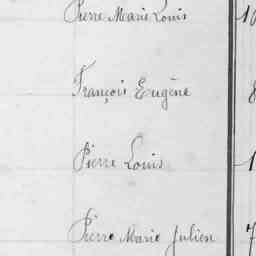 Pierre Marie Louis
François Eugène
Pierre Louis
Pierre Marie Julien